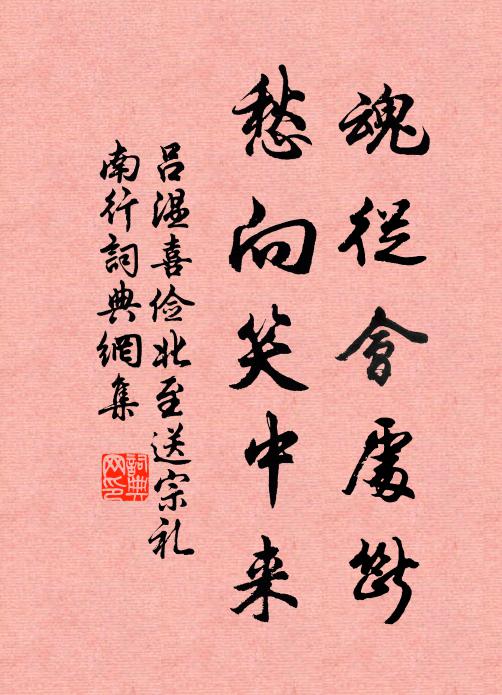 魂従會處斷
愁向笑中来
吕温喜俭北至送宗礼
南行詞典網集
詞典
网印